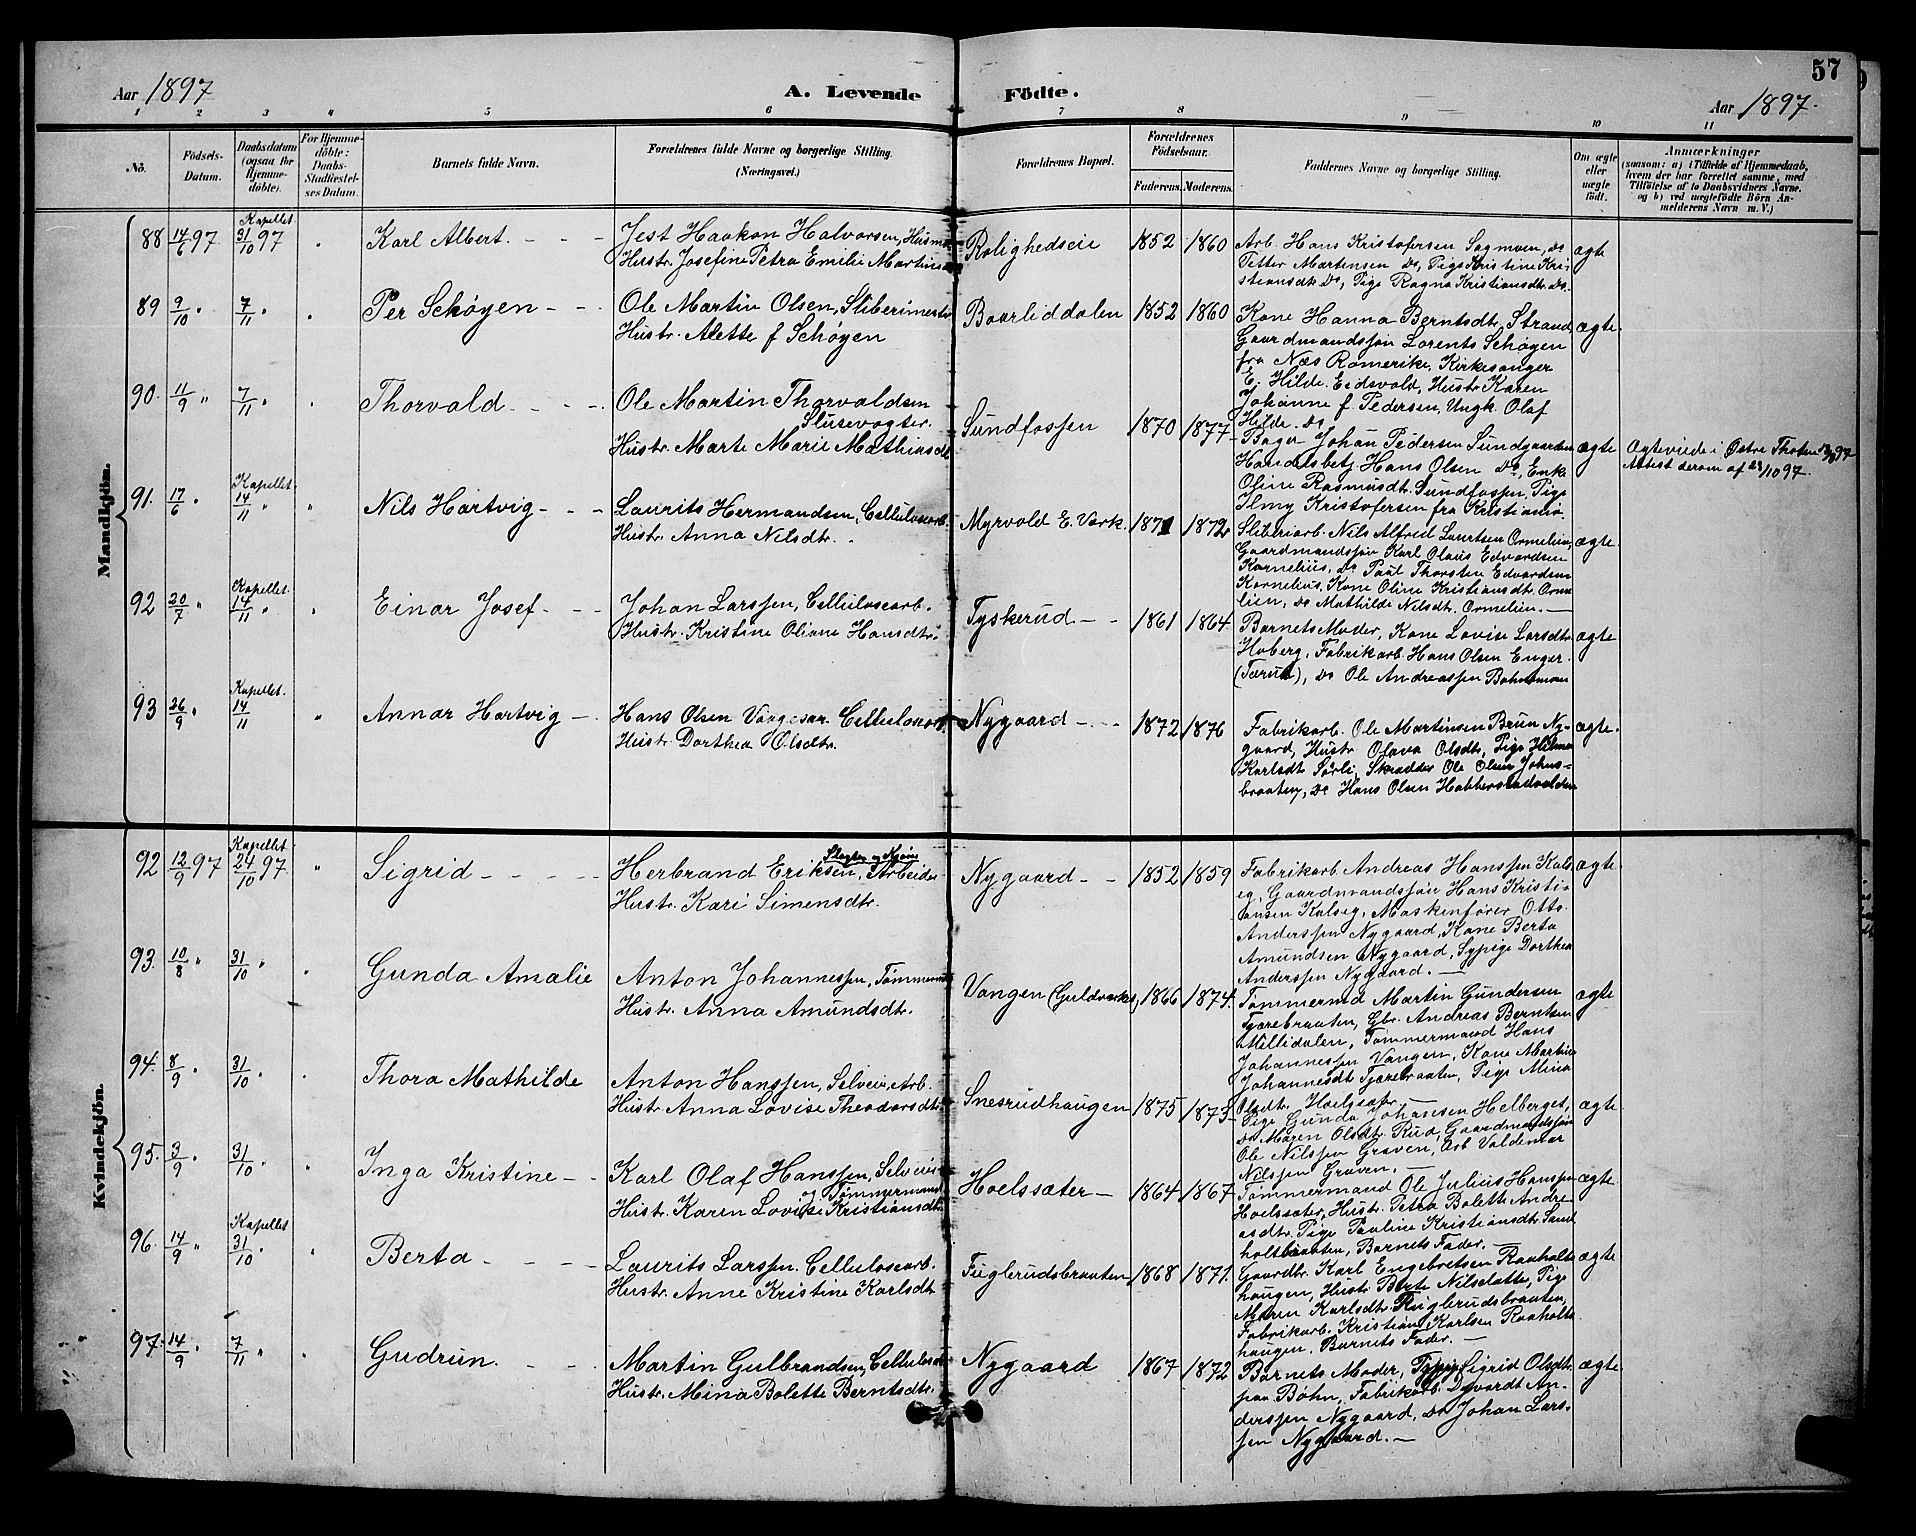 57
Aar 1897
A. Levende Födte.
Aar 1897.
1 2 3 4 5 6 7 8 9 10 11
No.
Födsels-Datum.
Daabsdatum (ogsaa for Hjemme-döbte).
For Hjemme-döbte: Daabs-Stadfæstelses Datum.
Barnets fulde Navn.
Forældrenes fulde Navne og borgerlige Stilling. (Næringsvei.)
Forældrenes Bopæl.
Forældrenes Födselsaar.
Faderens. Moderens.
Faddernes Navne og borgerlige Stilling.
Om ægte eller uægte födt.
Anmærkninger
(saasom: a) i Tilfælde af Hjemmedaab, hvem der har forrettet samme, med Tilföielse af to Daabsvidners Navne, og b) ved uægtefödte Börn Anmelderens Navn m. V.)
Mandkjön.
88 14/6 97 Kapellet 31/10 97 Karl Albert.
Jest Haakon Halvorsen, Husm.
Hustr. Josefine Petra Emilie
Rolighedseie 1852 1860
Arb. Hans Kristofersen Sagmoen, do
Petter Martinsen do, Pige Kristine Kri-
stiansdt. do, Pige Ragna Kristiansdtr. do.
ægte
89 9/10 " 7/11 " Per Schøyen
Ole Martin Olsen, Sliberimester
Hustr. Alette f Schøyen
Baarliddalen 1852 1860
Kone Hanna Berntsdtr. Strand,
Gaardmandssøn Lorents Schøyen
fra Næs Romerike, Kirkesanger
E. Hilde. Eidsvold, Hustr. Karen
Johanne f. Pedersen, Ungk. Olaf
Hilde. do
ægte
90. 11/9 " 7/11 " Thorvald.
Ole Martin Thorvaldsen
Slusevogter.
Hustr. Marte Marie Mathiasdtr
Sundfossen 1870 1877
Bager Johan Pedersen Sundgaarden
Handelsbetj. Hans Olsen do, Enke
Oline Rasmusdt. Sundfossen, Pige
Ilmy Kristofersen fra Kristiania.
ægte
Ægteviede i Østre Thoten
Attest derom af 23/10 97.
91. 17/6 " Kapellet 14/11 " Nils Hartvig
Laurits Hermandsen, Cellulosearb.
Hustr. Anna Nilsdtr.
Myrvold E. Værk. 1871 1872
Sliberiarb. Nils Alfred Lauritsen Ormelien,
Gaardmandssøn Karl Olaus Edvardsen
Kornelius, do Paul Thorsten Edvardsen
Kornelius, Kone Oline Kristiansdt. Orme
lien, do Mathilde Nilsdt. Ormelien.
ægte
92 20/7 " Kapellet 14/11 " Einar Josef
Johan Larssen, Cellulosearb.
Hustr. Kristine Oliane Hansdtr.
Tyskerud 1861 1864
Barnets Moder, Kone Lovise Larsdtr.
Hoberg, Fabrikarb. Hans Olsen Enger.
do Ole Andreassen
ægte
93 26/9 " Kapellet. 14/11 Annar Hartvig
Hans Olsen
Hustr. Dorthea Olsdtr.
Nygaard 1872 1876
Fabrikarb. Ole Martinsen Brun Ny-
gaard, Hustr Olava Olsdtr, Pige Hilma
Karlsdt Sørli, Skrædder Ole Olsen Johns-
braaten, do Hans Olsen
ægte.
Kvindekjön.
92 12/9 97 Kapellet 24/10 97 Sigrid
Herbrand Eriksen, Arbeider
Hustr. Kari Simensdtr.
Nygaard 1852 1859
Fabrikarb Andreas Hanssen Kals
eg, Gaardmandssøn Hans Kristi-
ansen Kalseg, Maskinfører Otto
Anderssen Nygaard, Kone Berta
Amundsen Nygaard, Sypige Dorthea
Anderssen Nygaard.
ægte
93. 10/8 " 31/10 " Gunda Amalie
Anton Johannessen, Tømmerm
Hustr. Anna Amundsdtr.
Vangen (Guldverket) 1866 1874.
Tømmermd Martin Gundersen
Tjærebraaten, Gbr. Andreas Berntsen
Millidalen, Tømmermand Hans
Johannessen Vangen, Kone Martine
Johannesdt Tjærebraaten, Pige Mina
Olsdtr.
ægte
94. 8/9 " 31/10 " Thora Mathilde
Anton Hanssen, Selveier, Arb.
Hustr Anna Lovise Theodorsdtr.
Snesrudhaugen 1875 1873
Pige Gunda Johansen Helberget,
do Maren Olsdtr. Rud, Gaardmandssøn
Ole Nilssen Graven, Arb Valdemar
Nilssen Graven.
ægte
95. 3/9 " 31/10 " Inga Kristine
Karl Olaf Hanssen, Selveier
og Tømmermand
Hustr. Karen Lovise Kristiansdtr.
Hoelssæter 1864 1867
Tømmermand Ole Julius Hanssen
Hoelssæter, Hustr. Petra Bolette Andre-
asdtr. Pige Pauline Kristiansdtr. Sand
holtbraaten, Barnets Fader.
ægte
96. 14/9 " Kapellet 31/10 " Berta
Laurits Larssen. Cellulosearb.
Hustr. Anne Kristine Karlsdt
Fuglerudsbraaten 1868 1871.
Gaardbr. Karl Engebretsen Raaholts
haugen, Hustr Berte Nilsdatter, Pige
Maren Karlsdtr. Fuglerudsbraaten,
Fabrikarb. Kristian Karlsen Raaholts
haugen, Barnets Fader.
ægte
97. 14/9 " 7/11 " Gudrun.
Martin Gulbrandsen, Cellulosearb
Hustr. Mina Bolette Berntsdtr.
Nygaard 1867 1872
Barnets Moder, Sigrid Olsdtr.
paa Bøhn, Fabrikarb. Edvardt An-
derssen Nygaard, do Johan Lars-
sen Nygaard.
ægte